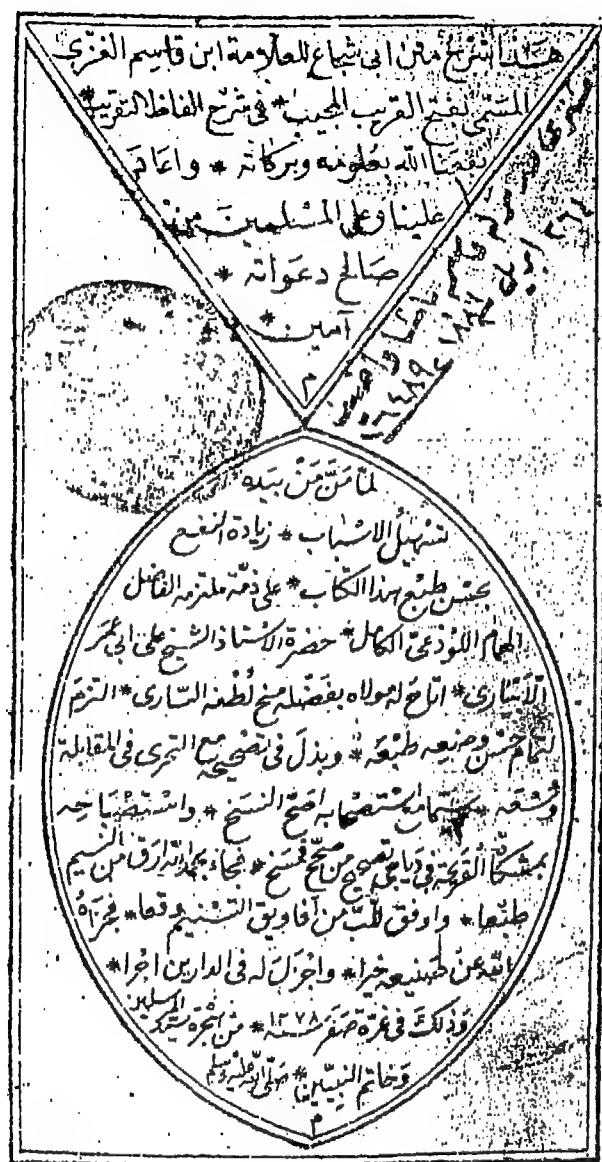 هذا شرح متن ابى شجاع للعلامة ابن قاسم الغزى
المسمى بفتح القريب المجيب * فى شرح الفاظ التقريب *
نفعنا الله بعلومه وبركاته * واعاد
علينا وعلى المسلمين من
صالح دعواته *
آمين *
م
قاسم
٢٦ ابريل ١٨٨٦
لما منّ مَنْ بيده
تسهيل الاسباب * زيادة النفع
بحسن طبع هذا الكتاب * على ذمة ملتزمه الفاضل
الهمام اللوذعىّ الكامل * حضرة الاستاذ الشيخ على ابى عمر
الابيارى * اتاح له مولاه بفضله منح لطفه السارى * التزم
تمام حسن وضيعه طبعه * وبذل فى تصحيحه مع التحرى فى المقابلة
وسعه * باستصحابه اصح النسخ * واستصباحه
بمشكاة القريحة فى دياجى تصحيح من صحح فنسخ * فجاء بحمد الله ارق من النسيم
طبعا * واوفق للّب من افاويق التسنيم وقعا * فجزاه
الله عن صنيعه خيرا * واجزل له فى الدارين اجرا *
وذلك فى غرة صفر سنه ١٢٧٨ * من هجرة سيد المرسلين
وخاتم النبيين * صلى الله عليه وسلم
م